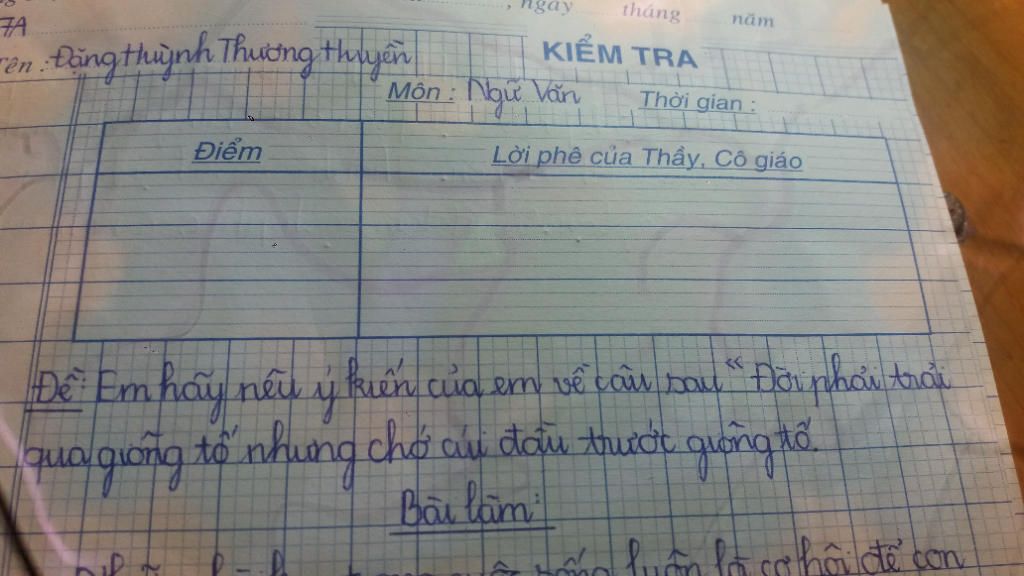 , ngày tháng năm
7A
Tên : Đặng Huỳnh Thương Huyền
KIỂM TRA
Môn : Ngữ Văn Thời gian :
Điểm Lời phê của Thầy, Cô giáo
Đề: Em hãy nêu ý kiến của em về câu sau “ Đời phải trải
qua giông tố nhưng chớ cúi đầu trước giông tố.
Bài làm:
sống luôn là cơ hội để con